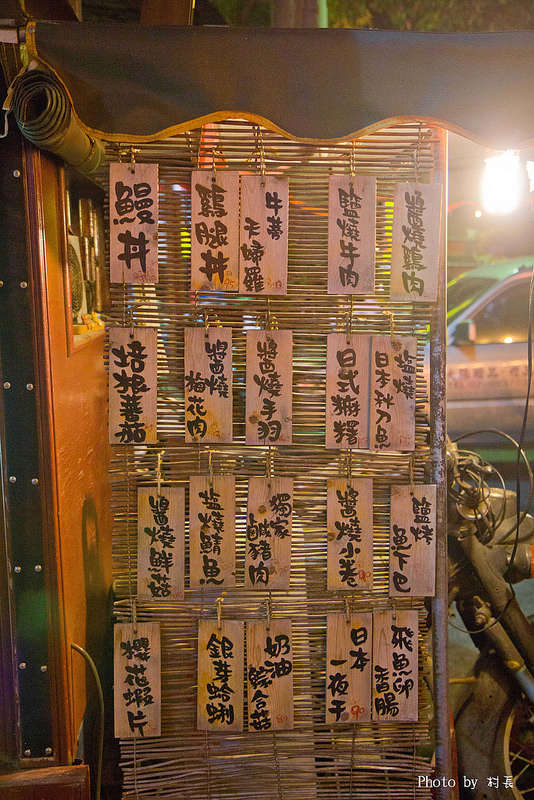 鰻丼
雞腿丼
牛蒡
天婦羅
鹽燒牛肉
醬燒雞肉
培根蕃茄
醬燒
梅花肉
醬燒手羽
日式
鹽燒
日本秋刀魚
醬燒鮮菇
鹽燒鯖魚
獨家
鹹豬肉
醬燒小卷
鹽烤
魚下巴
櫻花蝦片
銀芽蛤蜊
奶油
鮮合菇
日本
一夜干
飛魚卵
香腸
Photo by 村長